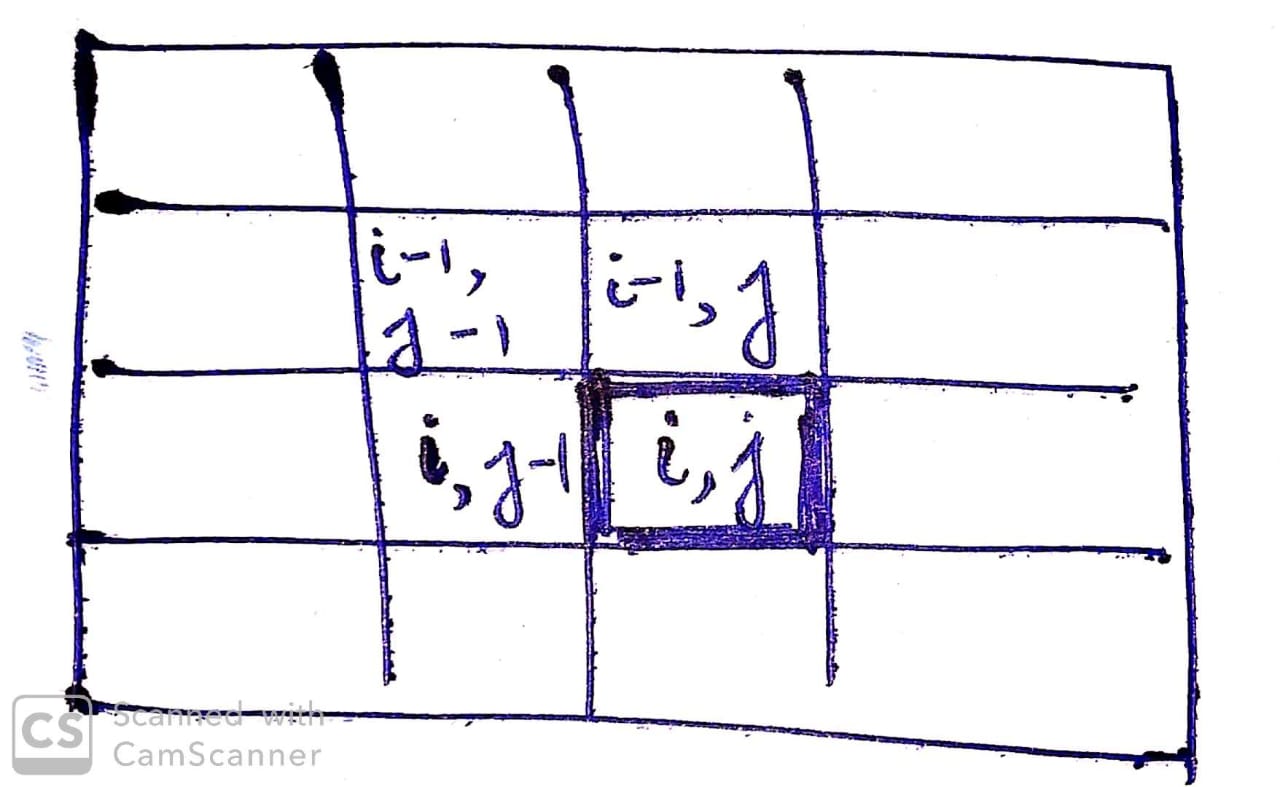 i-1,
j-1
i-1, j
i, j-1
i, j
CS
Scanned with
CamScanner